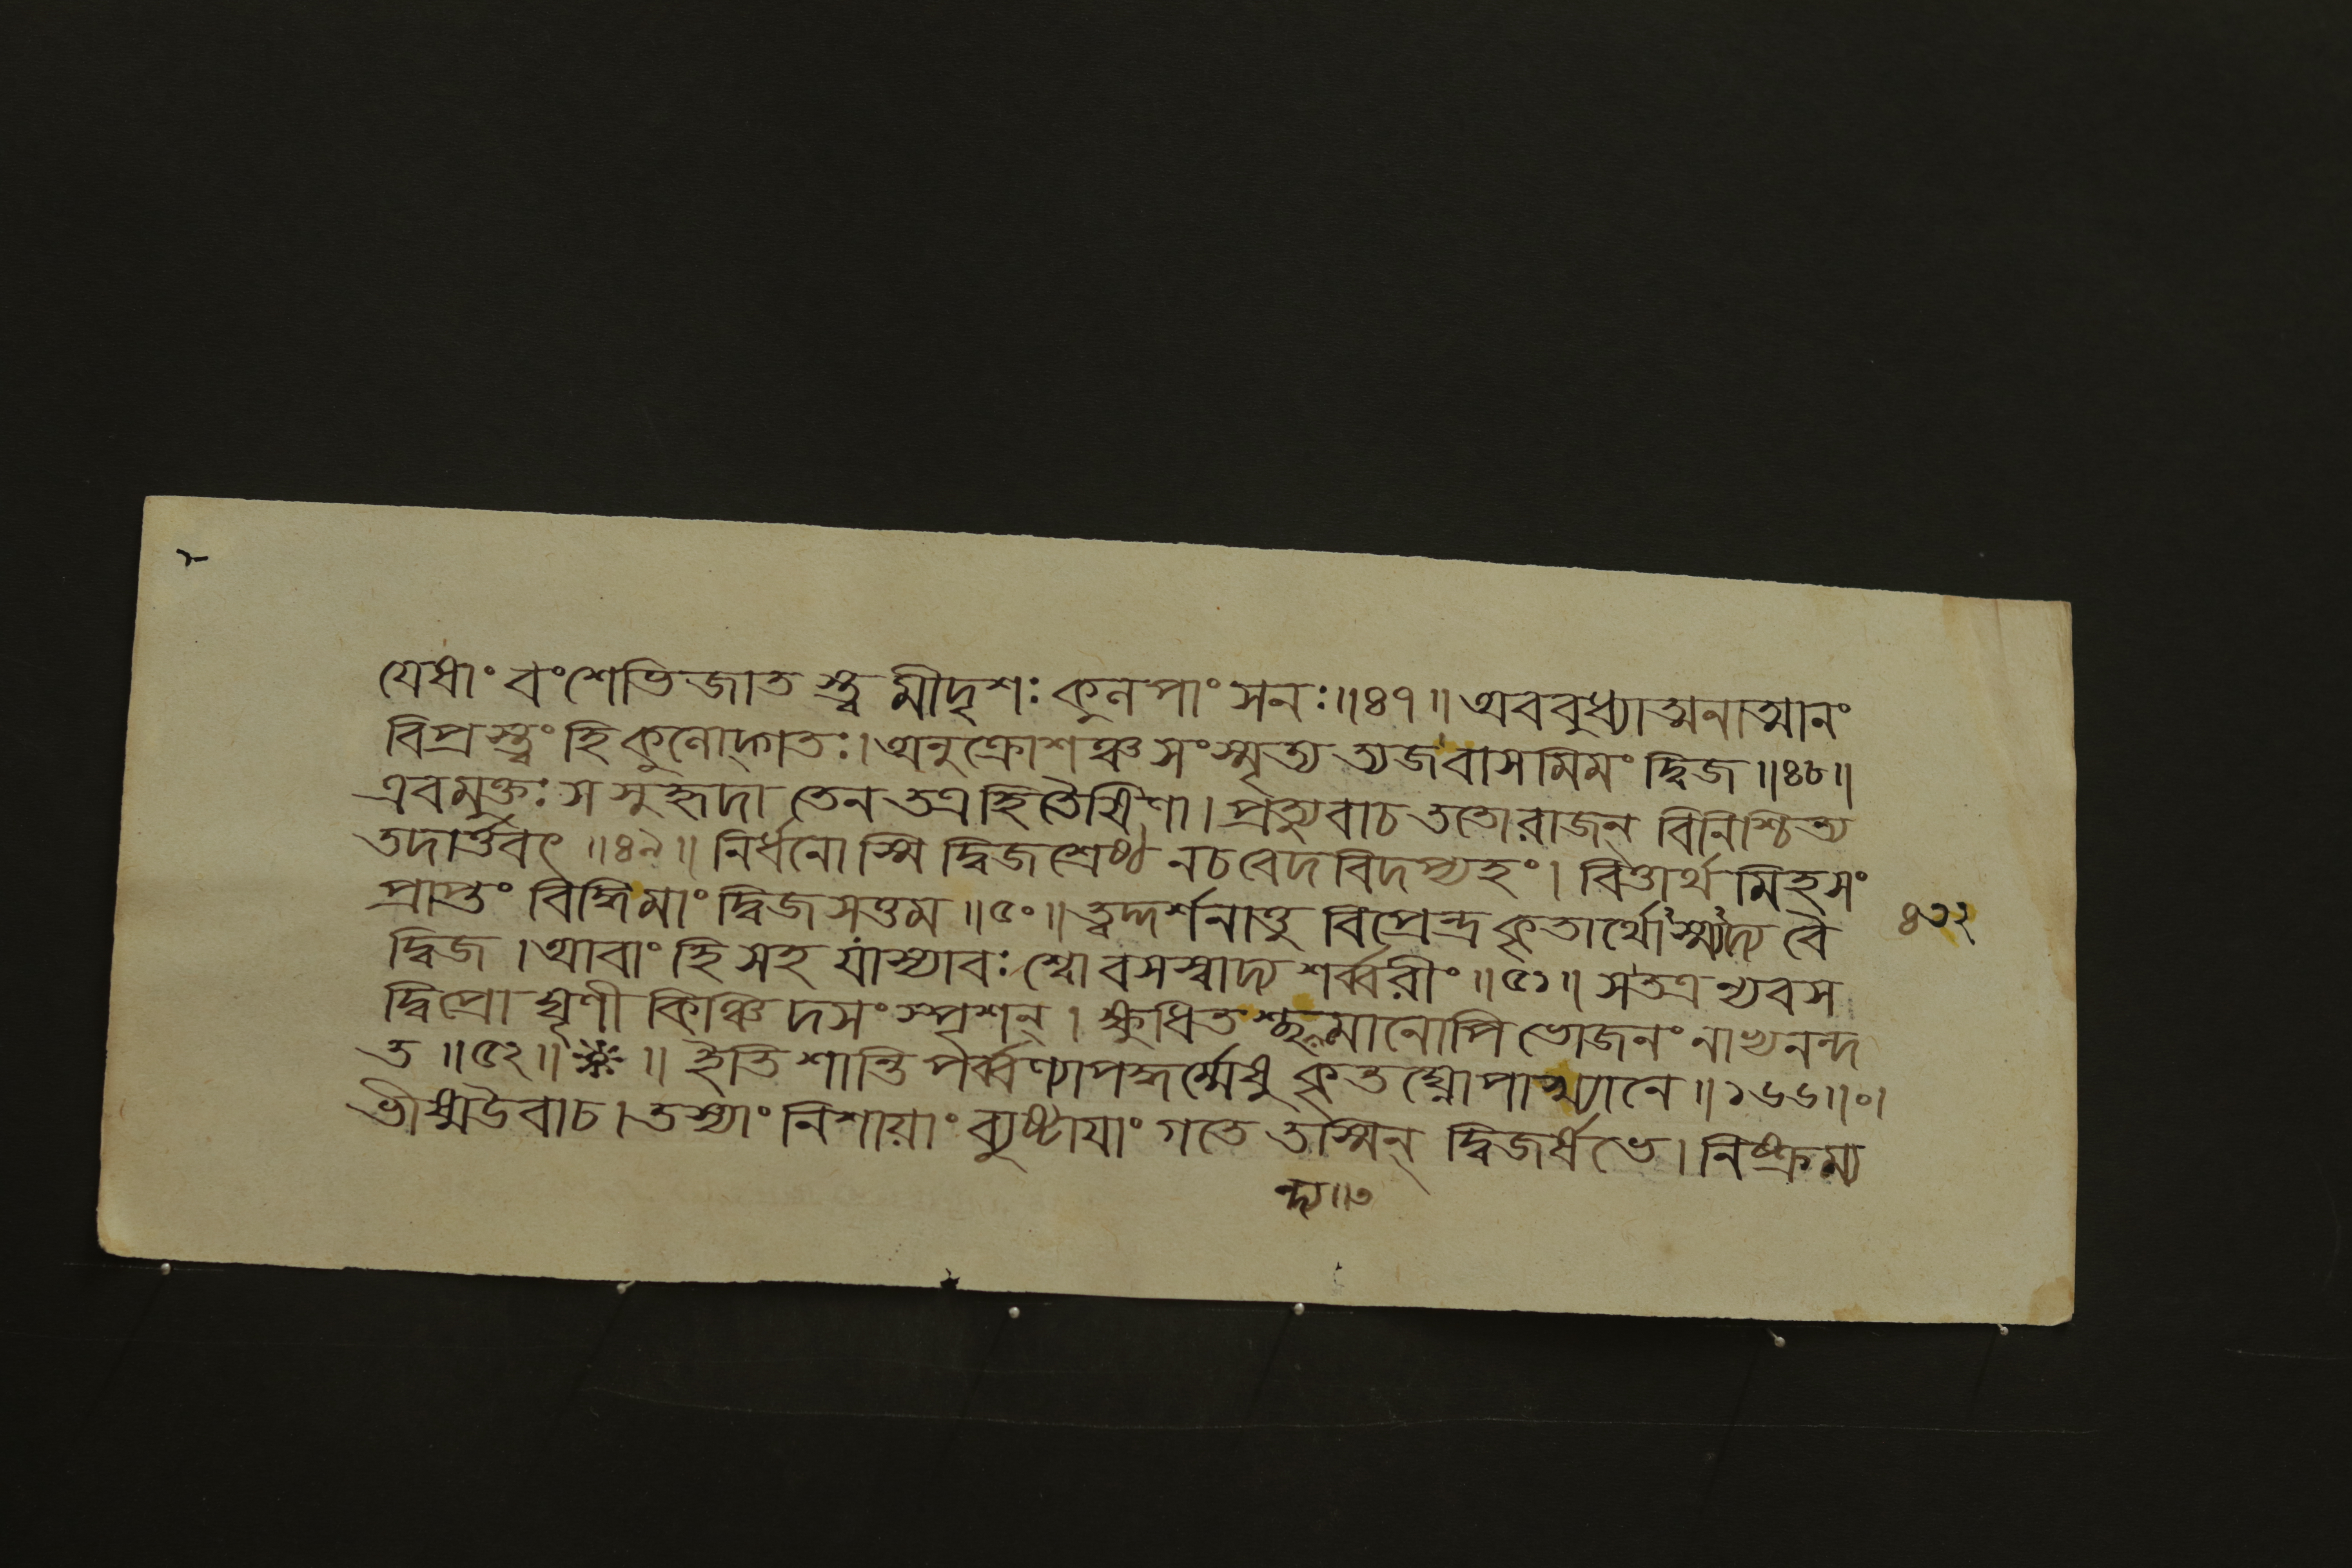 যেষাং বংশেভিজাতস্ত্বমীদৃশঃ কুলপাংসনঃ॥৪৭॥ অববুধ্যাত্মনাত্মানং
বিপ্রস্ত্বং হি কুলোদ্গতঃ। অনুক্রোশঞ্চ সংস্মৃত্য ত্যজ বাসমিমং দ্বিজ॥৪৮॥
এবমুক্তঃ স সুহৃদা তেন তত্র হিতৈষিণা। প্রত্যুবাচ ততো রাজন্ বিনিশ্চিত্য
তদার্ত্তবৎ॥৪৯॥ নির্ধনোস্মি দ্বিজশ্রেষ্ঠ ন চ বেদবিদপ্যহং। বিত্তার্থমিহ সং
প্রাপ্তং বিদ্ধি মাং দ্বিজসত্তম॥৫০॥ ত্বদ্দর্শনাত্তু বিপ্রেন্দ্র কৃতার্থোস্ম্যদ্য বৈ
দ্বিজ। আবাং হি সহ যাস্যাবঃ শ্বো বসস্বাদ্য শর্ব্বরীং॥৫১॥ স তত্র ন্যবস
দ্বিপ্রো ঘৃণী কিঞ্চিদসংস্পৃশন্। ক্ষুধিতশ্ছন্দ্যমানোপি ভোজনং নাভ্যনন্দ
ত॥৫২॥※॥ ইতি শান্তিপর্ব্বণ্যাপদ্ধর্ম্মেষু কৃতঘ্নোপাখ্যানে॥১৬৬॥০।
ভীষ্ম উবাচ। তস্যাং নিশায়াং ব্যুষ্টাযাং গতে তস্মিন্ দ্বিজর্ষভে। নিষ্ক্রম্য
ন্দ্য॥৩
৪৩২